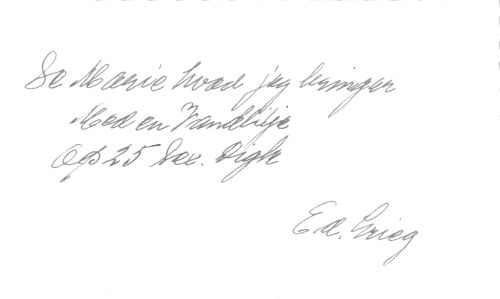 Se Marie hvad jeg bringer
Med en Vandlilje
Op 25 Sex. Digte
Ed. Grieg